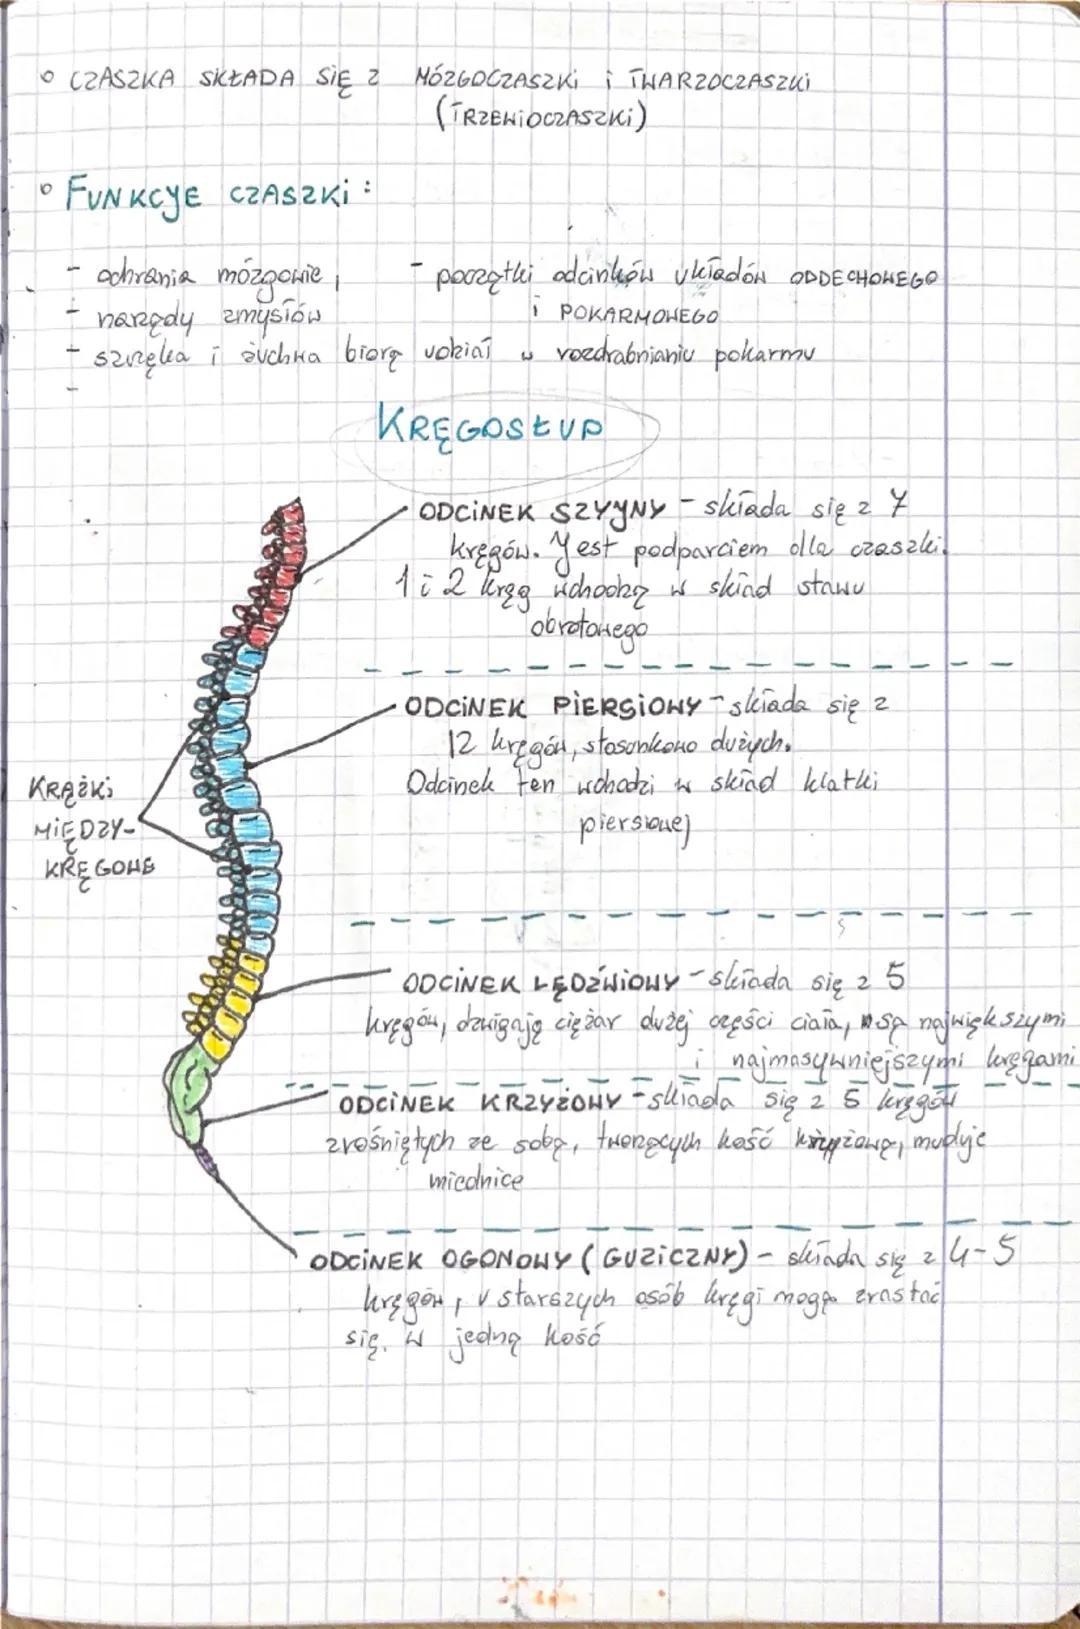 CZASZKA SKŁADA SIĘ Z MÓZGOCZASZKI i TWARZOCZASZKI
(TRZEWIOCZASZKI)
FUNKCJE CZASZKI:
- ochrania mózgowie,
- narządy zmysłów
- początki odcinków układów ODDECHOWEGO
i POKARMOWEGO
- szczęka i żuchwa biorą udział w rozdrabnianiu pokarmu
-
KRĘGOSŁUP
ODCINEK SZYJNY - składa się z 7
kręgów. Jest podparciem dla czaszki.
1 i 2 kręg wchodzą w skład stawu
obrotowego
ODCINEK PIERSIOWY - składa się z
12 kręgów, stosunkowo dużych.
Odcinek ten wchodzi w skład klatki
piersiowej
KRĄŻKI
MIĘDZY-
KRĘGOWE
ODCINEK LĘDŹWIOWY - składa się z 5
kręgów, dzwigają ciężar dużej części ciała, są największymi
i najmasywniejszymi kręgami
ODCINEK KRZYŻOWY - składa się z 5 kręgów
zrośniętych ze sobą, tworzących kość krzyżową,
miednice
ODCINEK OGONOWY (GUZICZNY) - składa się z 4-5
kręgów, u starszych osób kręgi mogą zrastać
się w jedną kość